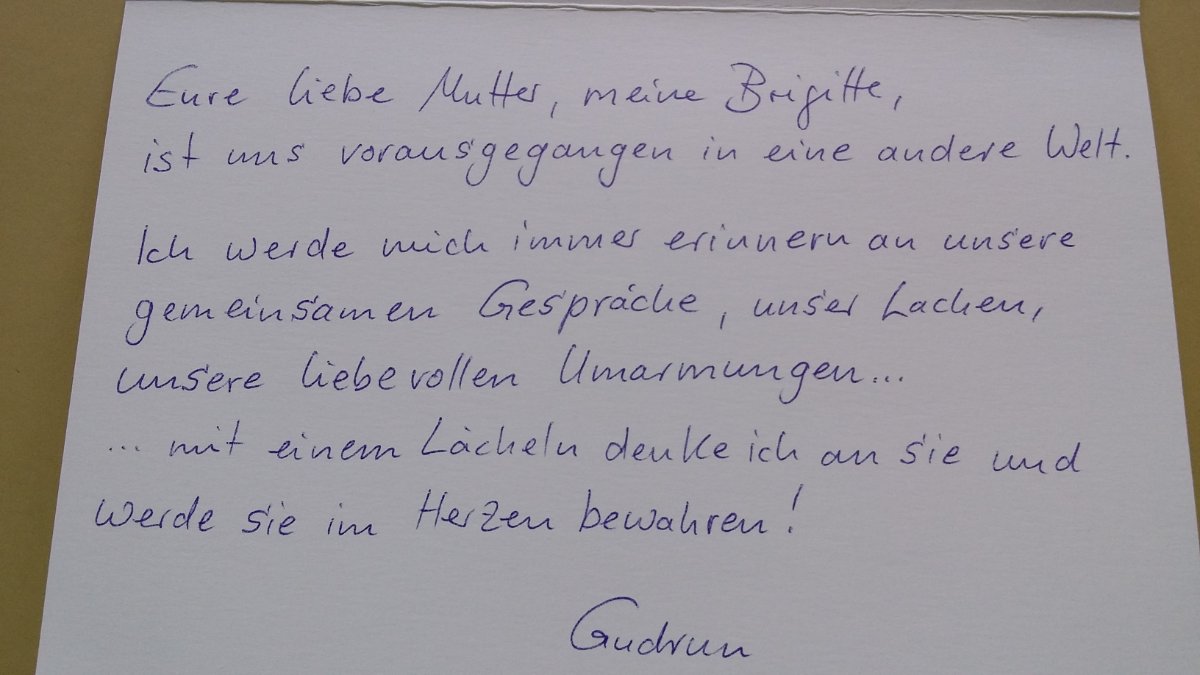 Eure liebe Mutter, meine Brigitte,
ist uns vorausgegangen in eine andere Welt.
Ich werde mich immer erinnern an unsere
gemeinsamen Gespräche, unser Lachen,
unsere liebevollen Umarmungen...
... mit einem Lächeln denke ich an sie und
werde sie im Herzen bewahren!
Gudrun